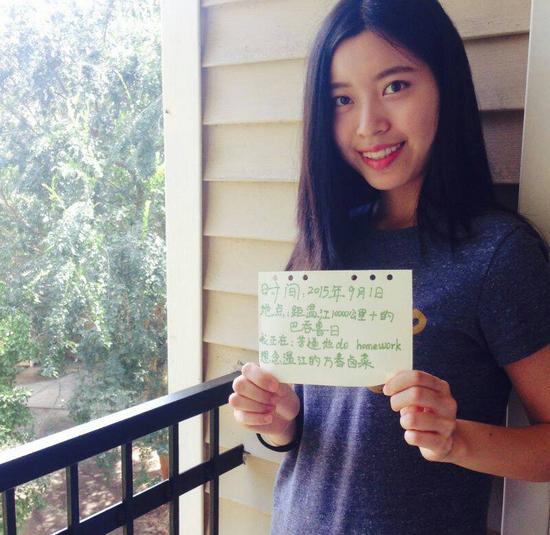 时间:2015年9月1日
地点:距温江10000公里+的
巴吞鲁日
我正在:苦逼地do homework
想念温江的万春卤菜